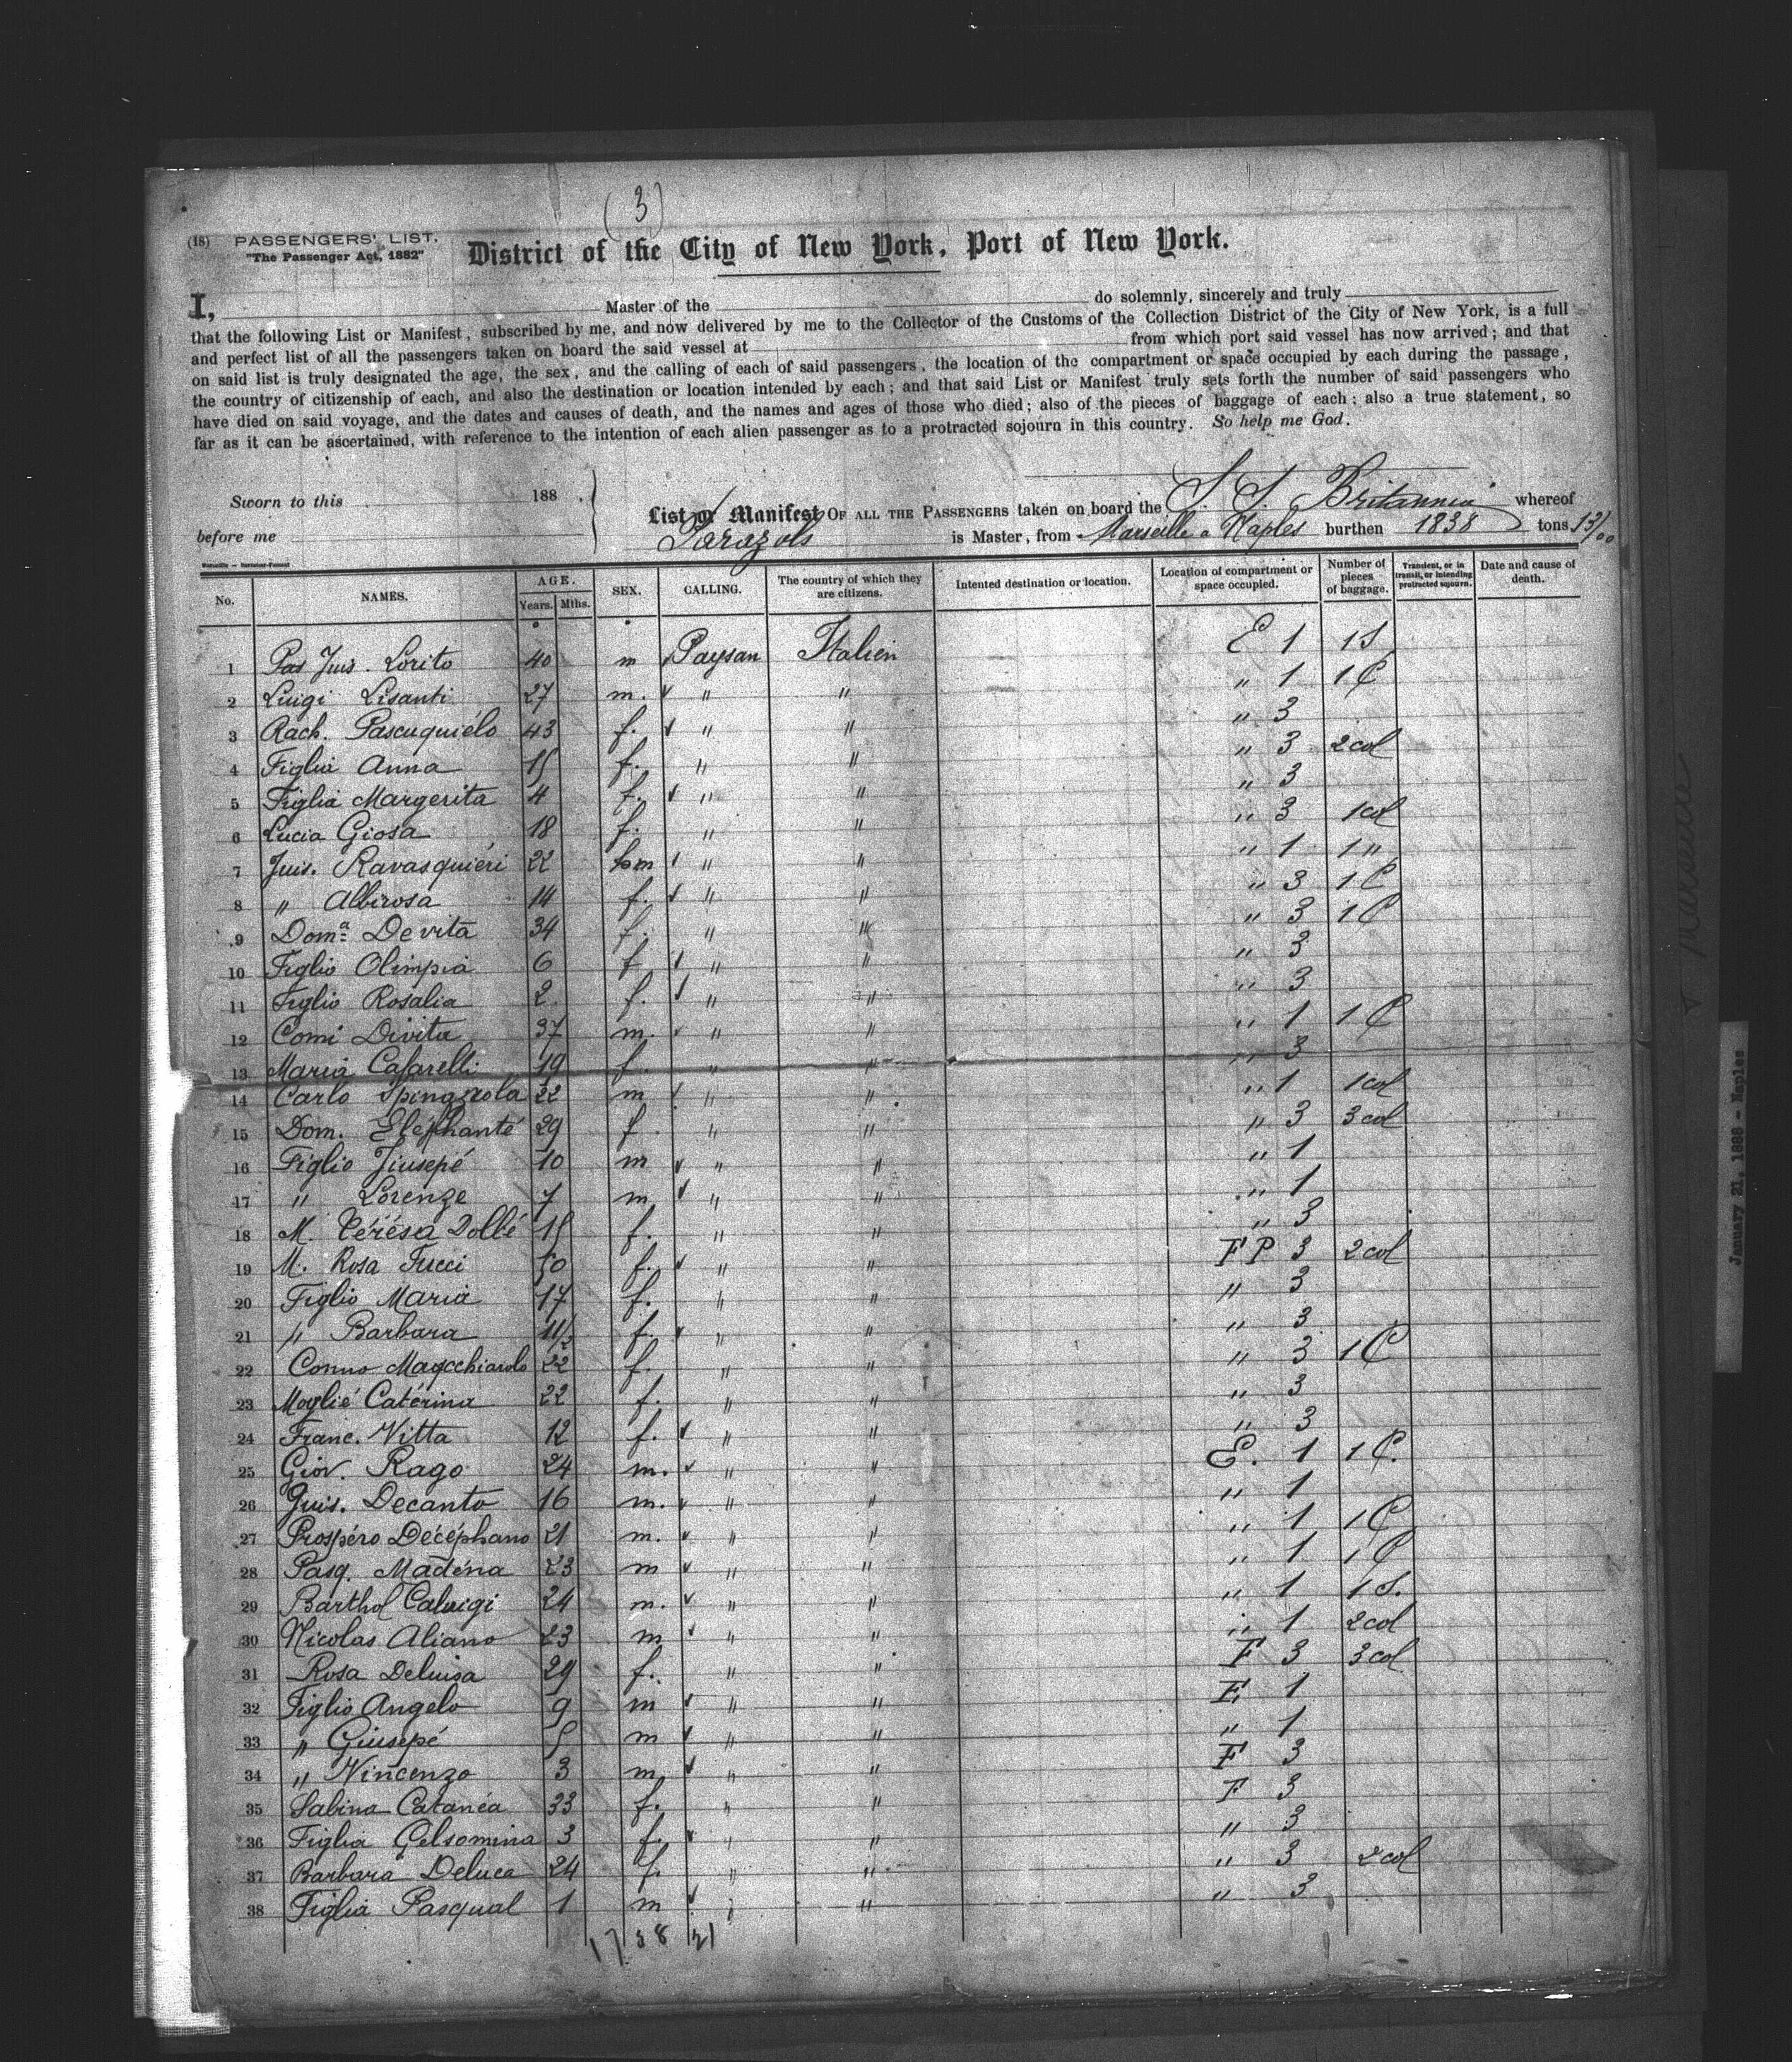 (3)
(18) PASSENGERS' LIST.
"The Passenger Act, 1882"
District of the City of New York, Port of New York.
I, Master of the do solemnly, sincerely and truly
that the following List or Manifest, subscribed by me, and now delivered by me to the Collector of the Customs of the Collection District of the City of New York, is a full
and perfect list of all the passengers taken on board the said vessel at from which port said vessel has now arrived; and that
on said list is truly designated the age, the sex, and the calling of each of said passengers, the location of the compartment or space occupied by each during the passage,
the country of citizenship of each, and also the destination or location intended by each; and that said List or Manifest truly sets forth the number of said passengers who
have died on said voyage, and the dates and causes of death, and the names and ages of those who died; also of the pieces of baggage of each; also a true statement, so
far as it can be ascertained, with reference to the intention of each alien passenger as to a protracted sojourn in this country. So help me God.
Sworn to this 188 .
before me
List or Manifest OF ALL THE PASSENGERS taken on board the S. S. Britannia whereof
Sarazols is Master, from Marseille a Naples burthen 1838 tons 13/00
No. NAMES. AGE. Years. Mths. SEX. CALLING. The country of which they are citizens. Intented destination or location. Location of compartment or space occupied. Number of pieces of baggage. Transient, or in transit, or intending protracted sojourn. Date and cause of death.
1 Pas Jius. Lorito 40 m Paysan Italien E 1 1 S
2 Luigi Lisanti 27 m. " " " 1 1 C
3 Rach. Pascuquiélo 43 f. " " " 3
4 Figlia Anna 15 f. " " " 3 2 col
5 Figlia Margerita 4 f. " " " 3
6 Lucia Giosa 18 f. " " " 3 1 col
7 Jius. Ravasquiéri 22 m " " " 1 1 "
8 " Albirosa 14 f. " " " 3 1 C
9 Doma Devita 34 f. " " " 3 1 C
10 Figlio Olimpia 6 f " " " 3
11 Figlio Rosalia 2 f. " " " 3
12 Comi Divita 37 m. " " " 1 1 C
13 Maria Cafarelli 19 f. " " " 3
14 Carlo Spingzola 22 m " " " 1 1 col
15 Dom. Eléphanté 29 f " " " 3 3 col
16 Figlio Jiusepé 10 m " " " 1
17 " Lorenze 7 m " " " 1
18 M. Térésa Dolbé 15 f. " " " 3
19 M. Rosa Fucci 50 f. " " F P 3 2 col
20 Figlio Maria 17 f. " " " 3
21 " Barbara 11/2 f. " " " 3
22 Conno Macchiarolo 22 f. " " " 3 1 C
23 Moglié Catérina 22 f. " " " 3
24 Franc. Vitta 12 f. " " " 3
25 Giov. Rago 24 m. " " E. 1 1 C.
26 Guis. Decanto 16 m. " " " 1
27 Prospéro Décéphano 21 m. " " " 1 1 C
28 Pasq. Madéna 23 m " " " 1 1 C
29 Barthol Caluigi 24 m. " " " 1 1 S.
30 Nicolas Aliano 23 m " " " 1 2 col
31 Rosa Deluisa 29 f. " " F 3 3 col
32 Figlio Angelo 9 m " " E 1
33 " Giusepé 5 m " " " 1
34 " Vincenzo 3 m " " F 3
35 Sabina Catanéa 33 f. " " F 3
36 Figlia Gelsomina 3 f. " " " 3
37 Barbara Deluca 24 f. " " " 3 2 col
38 Figlia Pasqual 1 m " " " 3
17 38 21
January 21, 1888 - Naples